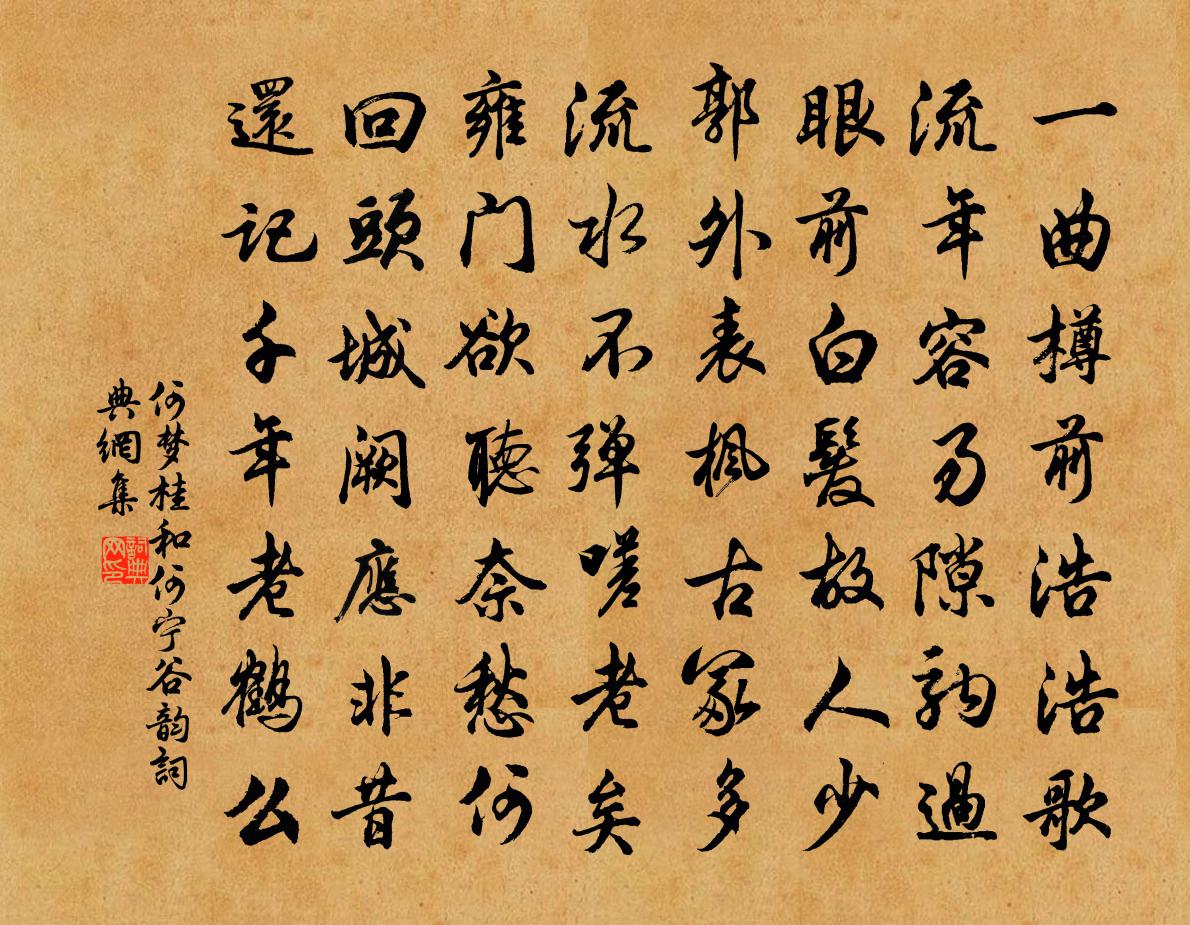 一曲樽前浩浩歌
流年容易隙駒過
眼前白髮故人少
郭外表楓古冢多
流水不弹嗟老矣
雍门欲聽奈愁何
回頭城阙應非昔
還記千年老鶴么
何梦桂和何宁谷韵詞
典網集
詞典网印